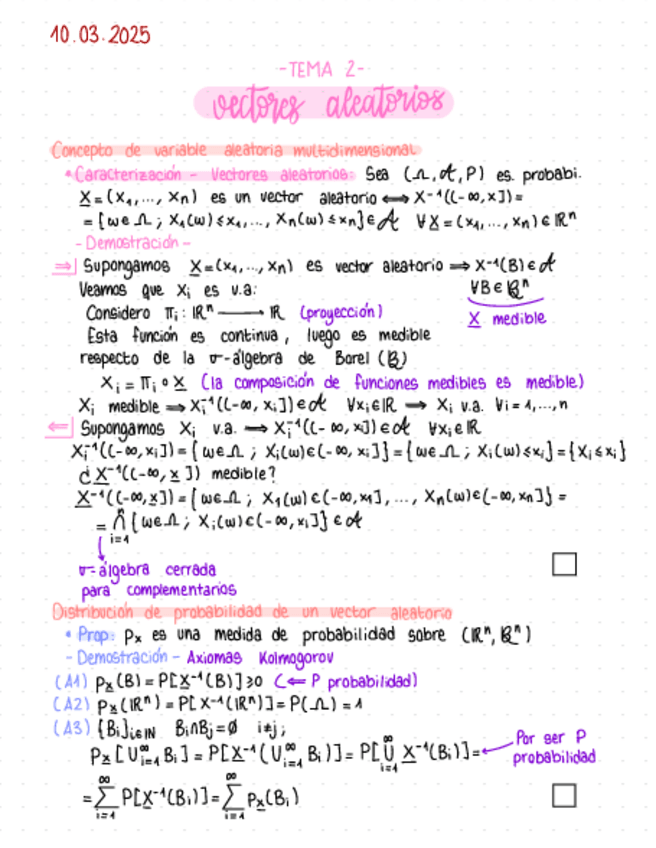 10.03.2025
-TEMA 2-
vectores aleatorios
Concepto de variable aleatoria multidimensional
* Caracterización - Vectores aleatorios: Sea (Ω, 𝒜, P) es. probabi.
X̲ = (X₁,..., Xn) es un vector aleatorio ⟺ X⁻¹((-∞, x]) =
= {ω∈Ω ; X₁(ω) ≤ x₁,..., Xn(ω) ≤ xn} ∈ 𝒜 ∀X̲ = (x₁,..., xn) ∈ ℝⁿ
- Demostración -
⇒| Supongamos X̲ = (x₁,..., xn) es vector aleatorio ⟹ X⁻¹(B) ∈ 𝒜
Veamos que Xᵢ es v.a: ∀B∈ℬⁿ
Considero πᵢ : ℝⁿ ⟶ ℝ (proyección) X̲ medible
Esta función es continua, luego es medible
respecto de la σ-álgebra de Borel (ℬ)
Xᵢ = πᵢ ∘ X̲ (la composición de funciones medibles es medible)
Xᵢ medible ⟹ Xᵢ⁻¹((-∞, xᵢ]) ∈ 𝒜 ∀xᵢ∈ℝ ⟹ Xᵢ v.a. ∀i = 1,...,n
⇐| Supongamos Xᵢ v.a. ⟹ Xᵢ⁻¹((-∞, xᵢ]) ∈ 𝒜 ∀xᵢ∈ℝ
Xᵢ⁻¹((-∞, xᵢ]) = {ω∈Ω ; Xᵢ(ω)∈(-∞, xᵢ]} = {ω∈Ω ; Xᵢ(ω) ≤ xᵢ} = {Xᵢ ≤ xᵢ}
¿X̲⁻¹((-∞, x̲]) medible?
X̲⁻¹((-∞, x̲]) = {ω∈Ω ; X₁(ω)∈(-∞, x₁], ..., Xn(ω)∈(-∞, xn]} =
= ⋂ⁿᵢ₌₁ {ω∈Ω ; Xᵢ(ω)∈(-∞, xᵢ]} ∈ 𝒜
σ-álgebra cerrada
para complementarios
Distribución de probabilidad de un vector aleatorio
* Prop: Px es una medida de probabilidad sobre (ℝⁿ, ℬⁿ)
- Demostración - Axiomas Kolmogorov
(A1) Px(B) = P[X⁻¹(B)] ≥ 0 (⟸ P probabilidad)
(A2) Px(ℝⁿ) = P[X⁻¹(ℝⁿ)] = P(Ω) = 1
(A3) {Bᵢ}ᵢ∈ℕ Bᵢ∩Bⱼ = ∅ i≠j;
Px[⋃^∞ᵢ₌₁ Bᵢ] = P[X⁻¹(⋃^∞ᵢ₌₁ Bᵢ)] = P[⋃^∞ᵢ₌₁ X̲⁻¹(Bᵢ)] = ← Por ser P
probabilidad
= ∑^∞ᵢ₌₁ P[X̲⁻¹(Bᵢ)] = ∑^∞ᵢ₌₁ Px̲(Bᵢ)